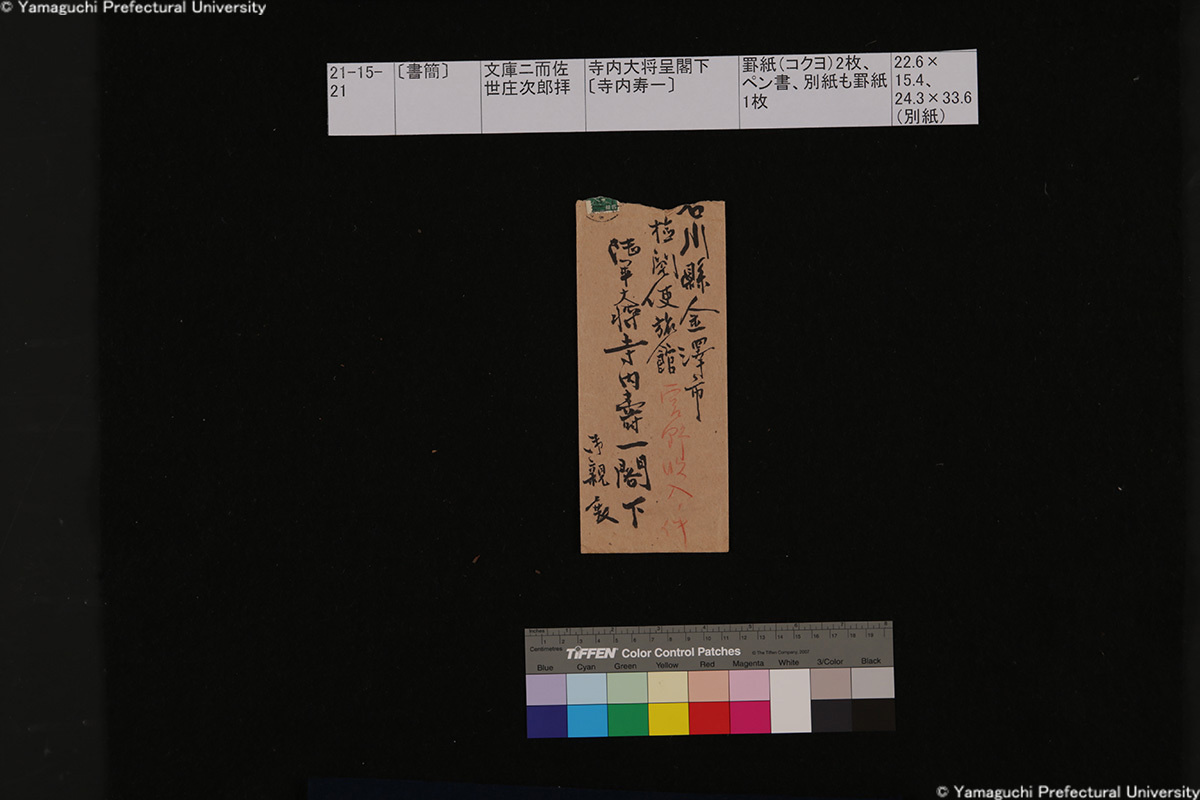 © Yamaguchi Prefectural University
21-15-
21
〔書簡〕
文庫ニ而佐
世庄次郎拝
寺内大将呈閣下
〔寺内寿一〕
罫紙（コクヨ）2枚、
ペン書、別紙も罫紙
1枚
22.6×
15.4、
24.3×33.6
（別紙）
石川縣金澤市
旅館
宮野収入ノ件
陸軍大将寺内壽一閣下
御親展
Inches
Centimetres
TIFFEN Color Control Patches
© The Tiffen Company, 2007
Blue Cyan Green Yellow Red Magenta White 3/Color Black
© Yamaguchi Prefectural University